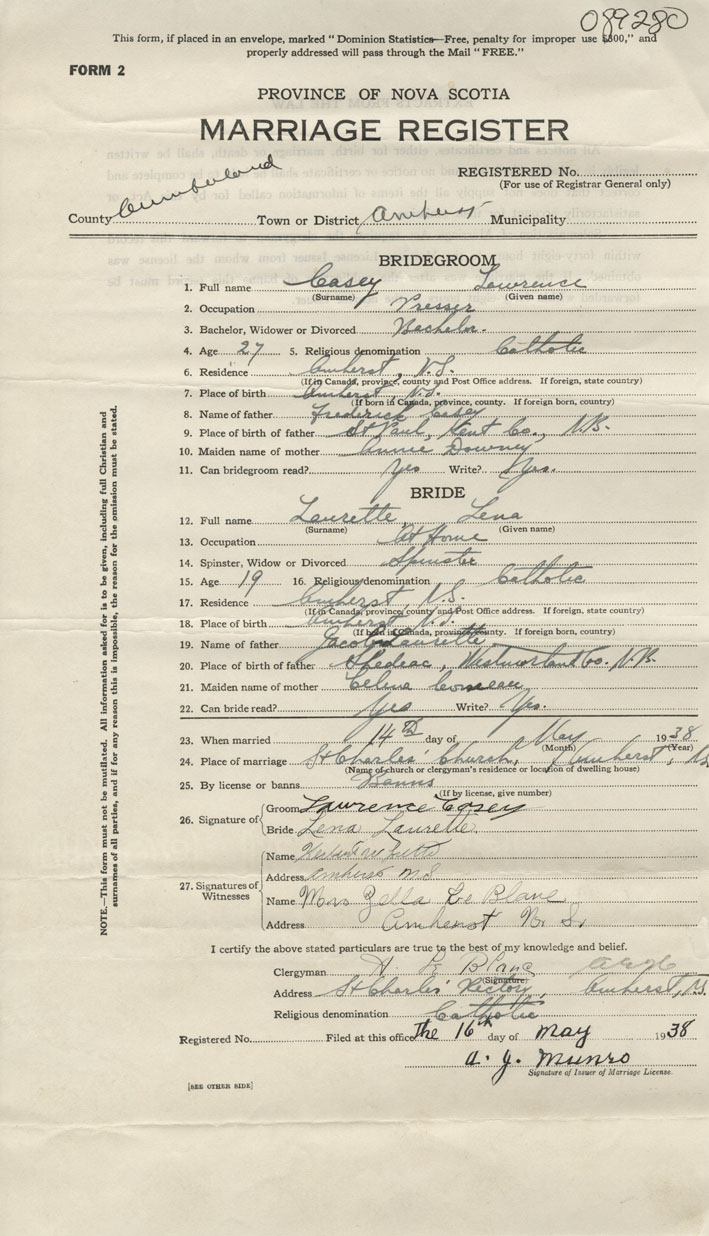 089280
This form, if placed in an envelope, marked "Dominion Statistics—Free, penalty for improper use $300," and
properly addressed will pass through the Mail "FREE."
FORM 2
PROVINCE OF NOVA SCOTIA
MARRIAGE REGISTER
REGISTERED No.
(For use of Registrar General only)
County Cumberland Town or District Amherst Municipality
BRIDEGROOM
1. Full name Casey Lawrence
(Surname) (Given name)
2. Occupation Presser
3. Bachelor, Widower or Divorced Bachelor.
4. Age 27 5. Religious denomination Catholic
6. Residence Amherst, N.S.
(If in Canada, province, county and Post Office address. If foreign, state country)
7. Place of birth Amherst, N.S.
(If born in Canada, province, county. If foreign born, country)
8. Name of father Frederick Casey
9. Place of birth of father St Paul, Kent Co., N.B.
10. Maiden name of mother Annie Downey
11. Can bridegroom read? Yes Write? Yes.
BRIDE
12. Full name Laurette, Lena
(Surname) (Given name)
13. Occupation At Home
14. Spinster, Widow or Divorced Spinster
15. Age 19 16. Religious denomination Catholic
17. Residence Amherst, N.S.
(If in Canada, province, county and Post Office address. If foreign, state country)
18. Place of birth Amherst N.S.
(If born in Canada, province, county. If foreign born, country)
19. Name of father Jacob Laurette
20. Place of birth of father Shediac, Westmorland Co. N.B.
21. Maiden name of mother Celina Comeau
22. Can bride read? Yes Write? Yes.
23. When married 14th day of May 1938
(Month) (Year)
24. Place of marriage St Charles' Church, Amherst,
(Name of church or clergyman's residence or location of dwelling house)
25. By license or banns Banns
(If by license, give number)
26. Signature of Groom Lawrence Casey
Bride Lena Laurette
27. Signatures of Witnesses
Name
Address Amherst N S
Name Mrs Zella Le Blanc
Address Amherst N. S.
I certify the above stated particulars are true to the best of my knowledge and belief.
Clergyman H. Le Blanc
(Signature)
Address St Charles' Rectory, Amherst, N.S.
Religious denomination Catholic
Registered No. Filed at this office The 16th day of May 1938
A. J. Munro
Signature of Issuer of Marriage License.
[SEE OTHER SIDE]
NOTE.—This form must not be mutilated. All information asked for is to be given, including full Christian and
surnames of all parties, and if for any reason this is impossible, the reason for the omission must be stated.